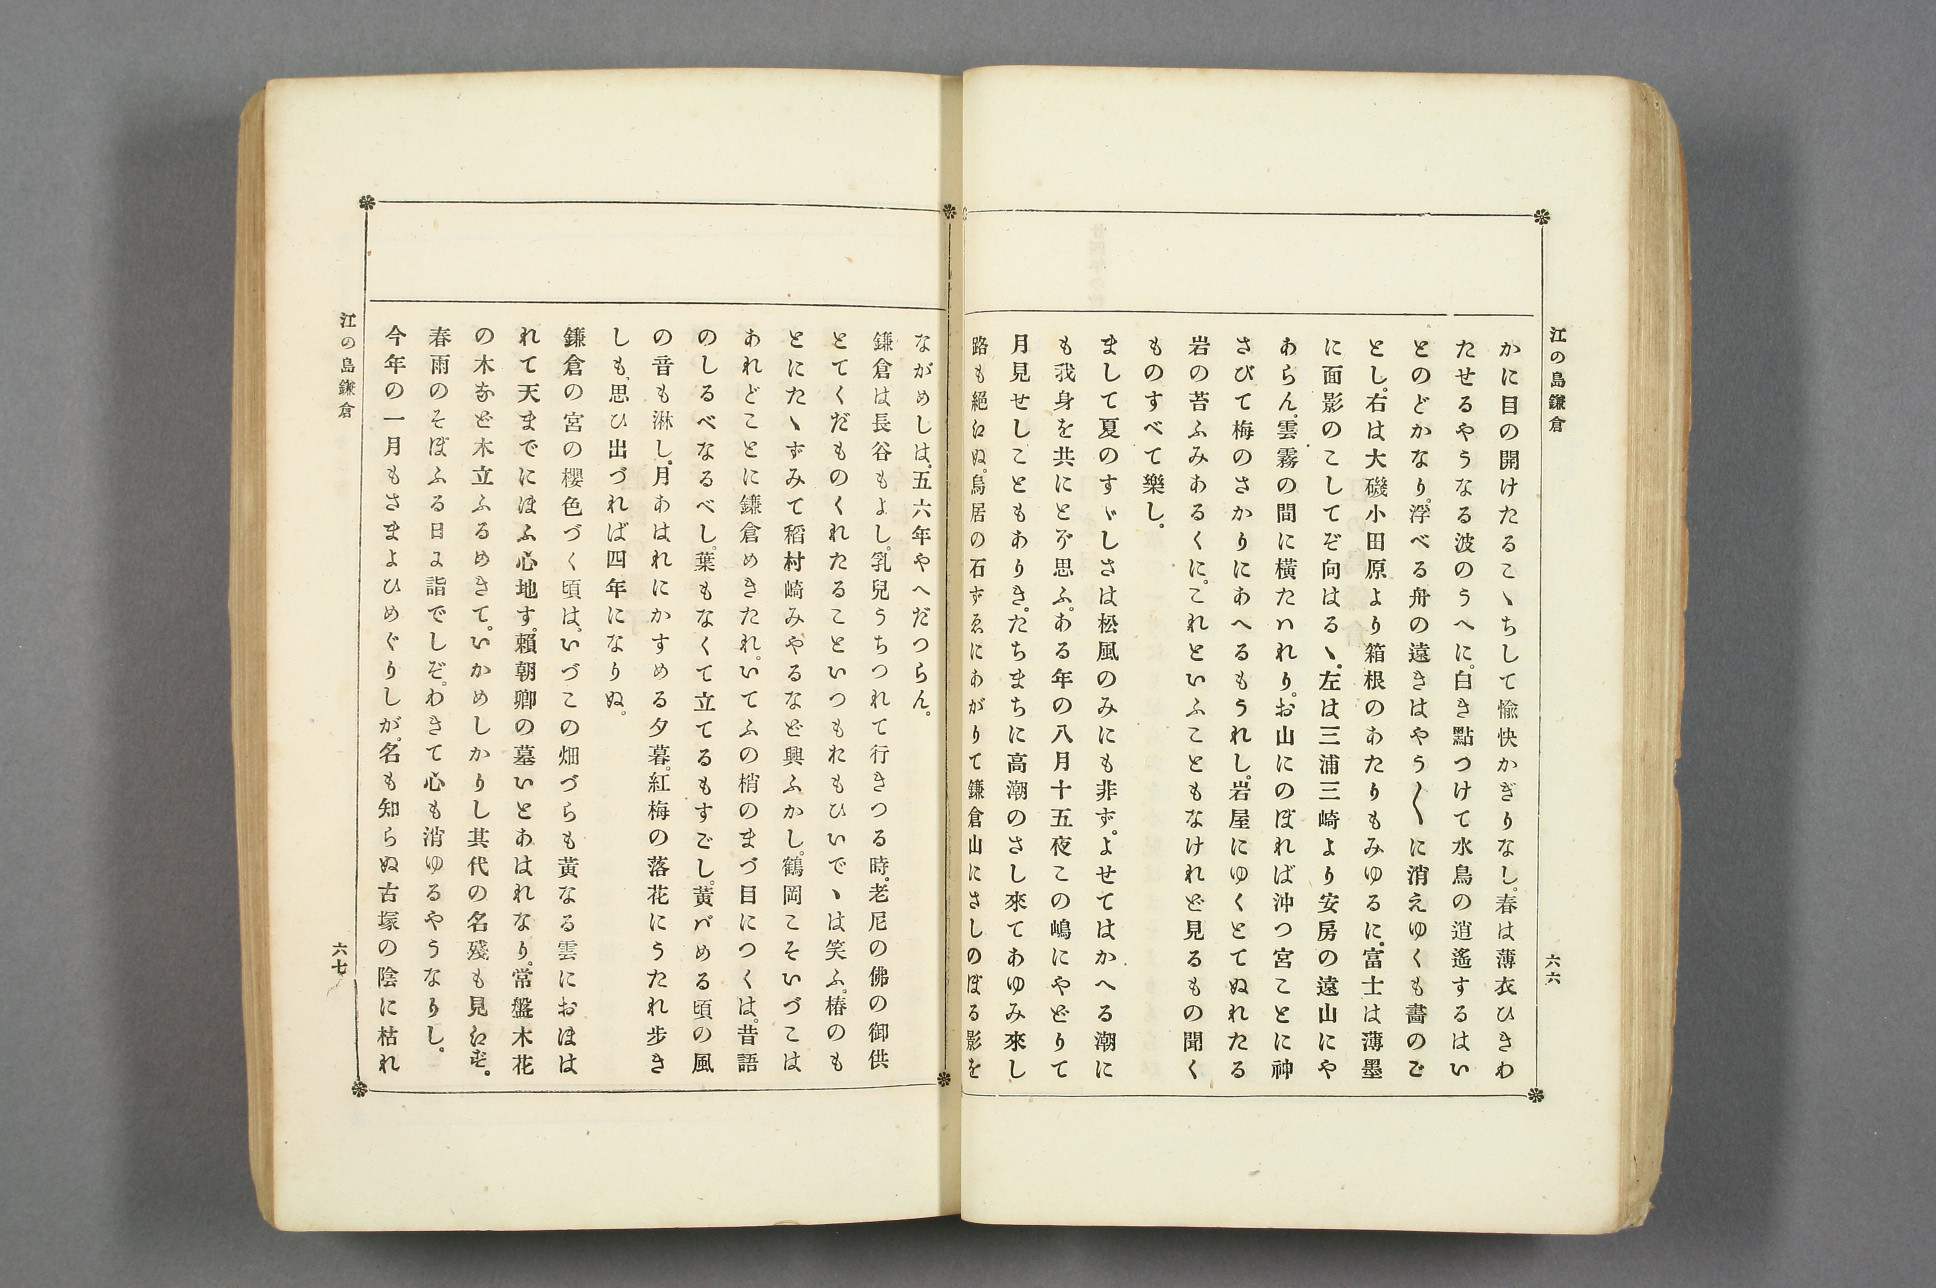 江の島鎌倉
六六
かに目の開けたるこゝちして愉快かぎりなし。春は薄衣ひきわ
たせるやうなる波のうへに。白き點つけて水鳥の逍遙するはい
とのどかなり。浮べる舟の遠きはやう〱に消えゆくも畵のご
とし。右は大磯小田原より箱根のあたりもみゆるに。富士は薄墨
に面影のこしてぞ向はるゝ。左は三浦三崎より安房の遠山にや
あらん。雲霧の間に横たハれり。お山にのぼれば沖つ宮ことに神
さびて梅のさかりにあへるもうれし。岩屋にゆくとてぬれたる
岩の苔ふみあるくに。これといふこともなけれど見るもの聞く
ものすべて樂し。
まして夏のすゞしさは松風のみにも非ず。よせてはかへる潮に
も我身を共にとぞ思ふ。ある年の八月十五夜この嶋にやどりて
月見せしこともありき。たちまちに高潮のさし來てあゆみ來し
路も絕えぬ。鳥居の石ずゑにあがりて鎌倉山にさしのぼる影を
ながめしは。五六年やへだつらん。
鎌倉は長谷もよし。乳兒うちつれて行きつる時。老尼の佛の御供
とてくだものくれたることいつもわもひいでゝは笑ふ。椿のも
とにたゝずみて稻村崎みやるなど興ふかし。鶴岡こそいづこは
あれどことに鎌倉めきたれ。いてふの梢のまづ目につくは。昔語
のしるべなるべし。葉もなくて立てるもすごし。黃バめる頃の風
の音も淋し。月あはれにかすめる夕暮。紅梅の落花にうたれ步き
しも、思ひ出づれば四年になりぬ。
鎌倉の宮の櫻色づく頃は、いづこの畑づらも黃なる雲におほは
れて天までにほふ心地す。賴朝卿の墓いとあはれなり。常盤木花
の木など木立ふるめきて。いかめしかりし其代の名殘も見えず。
春雨のそぼふる日に詣でしぞ。わきて心も消ゆるやうなりし。
今年の一月もさまよひめぐりしが。名も知らぬ古塚の陰に枯れ
江の島鎌倉
六七